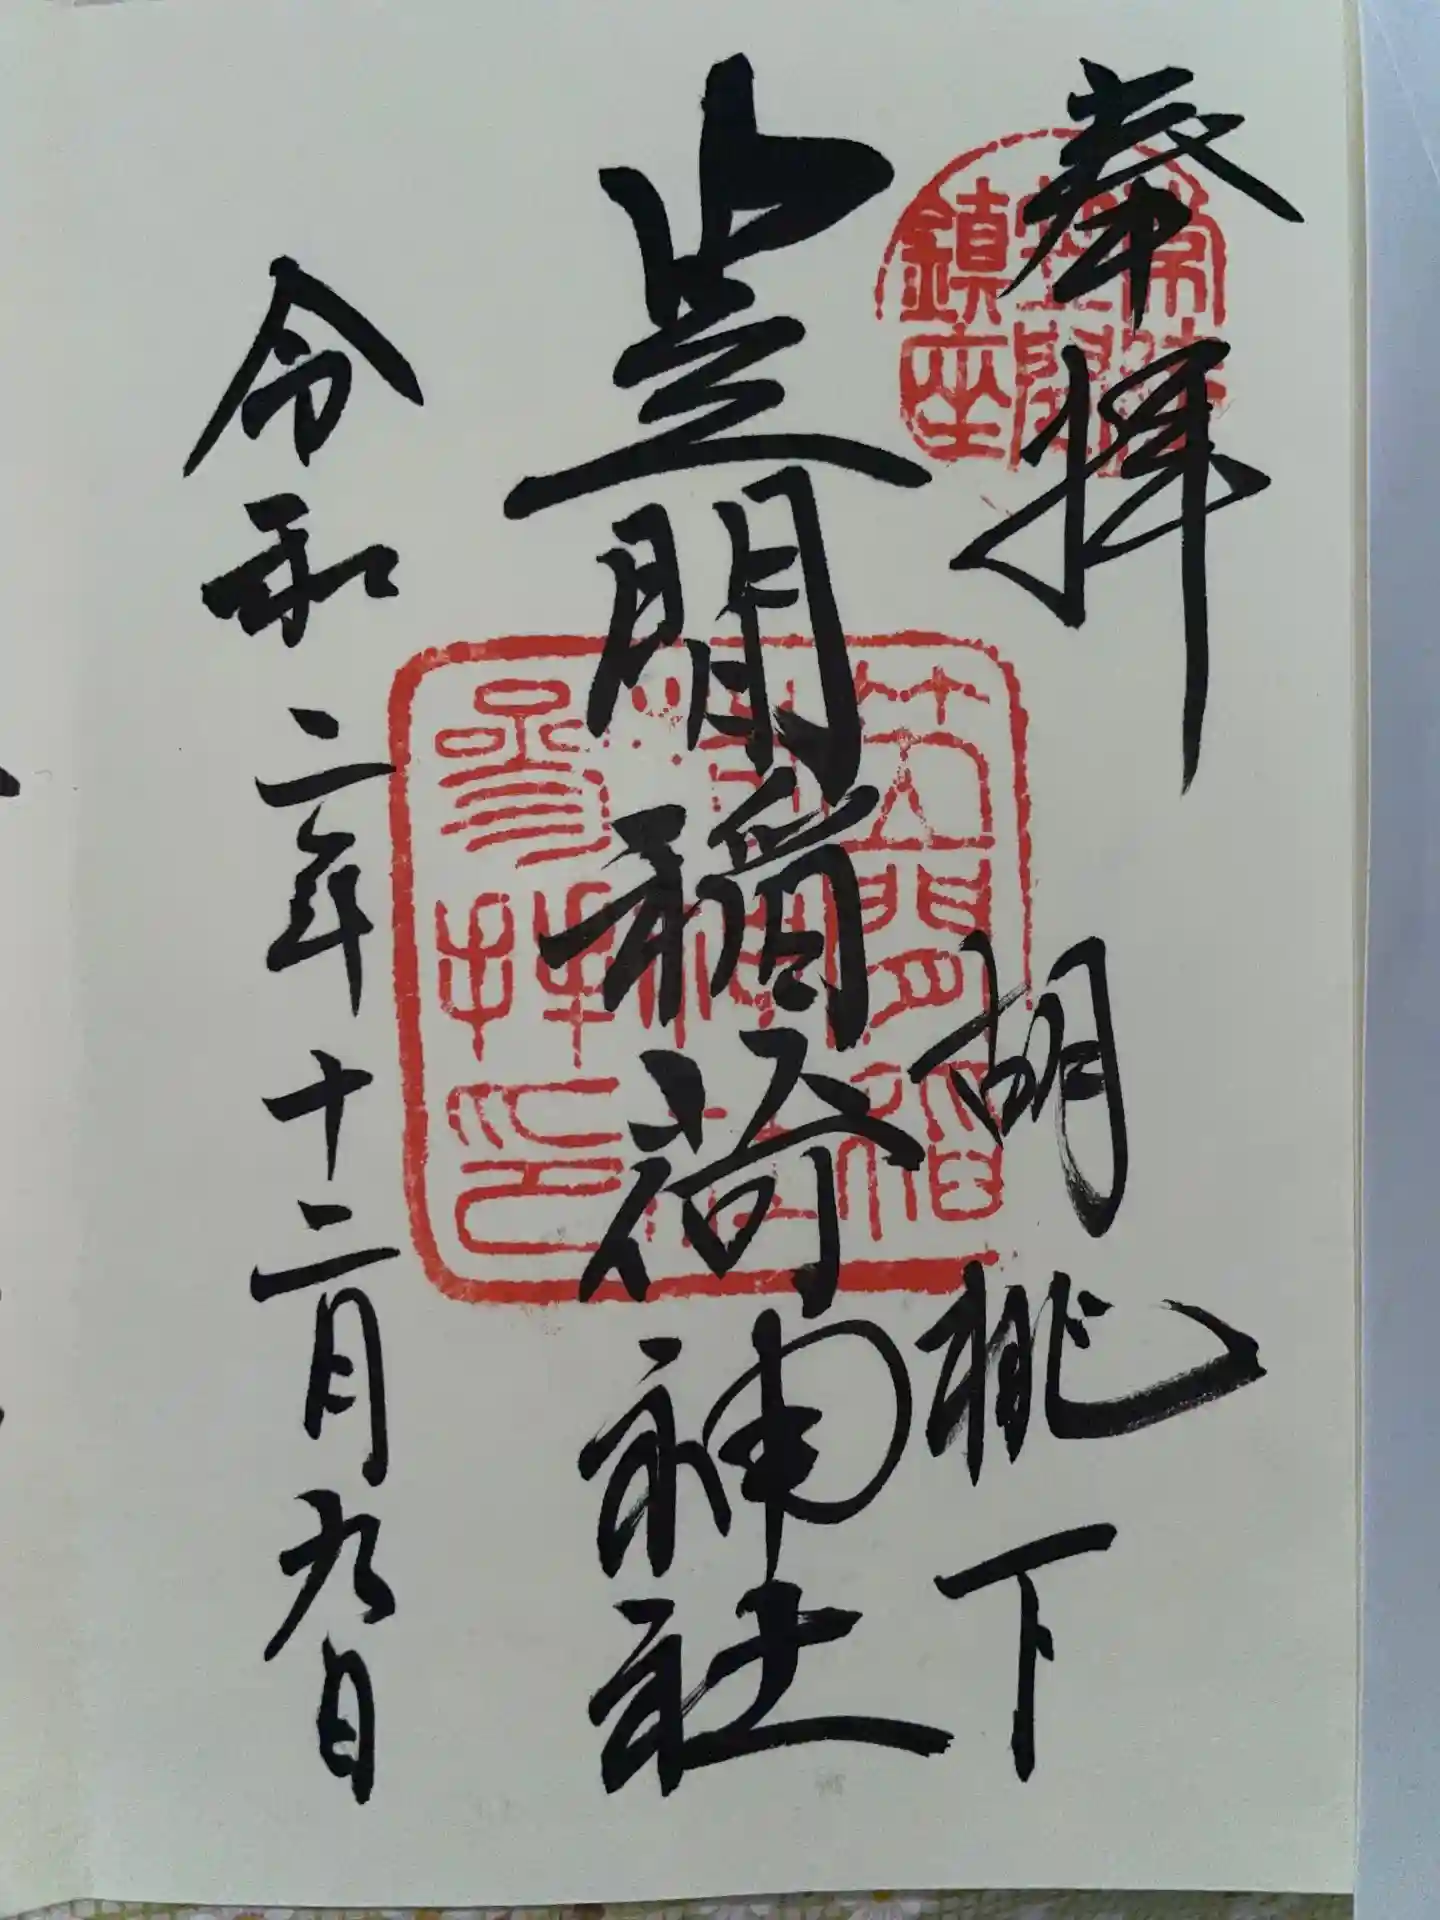 奉拝
胡桃下
笠間稲荷神社
令和二年十二月九日
常陸
笠間
鎮座
笠間稲
荷神社
参拝印